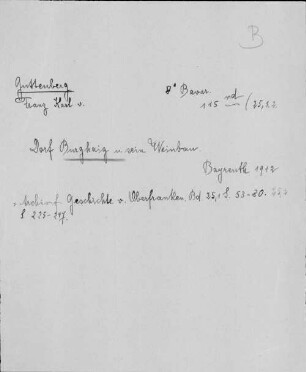 B
Guttenberg
Franz Karl v.
8° Bavar.
115 rd / (25,1.2
Dorf Burghaig u. sein Weinbau
Bayreuth 1912
Archiv f. Geschichte v. Oberfranken Bd. 25,1 S. 53-80. 25,2
S. 225-317.